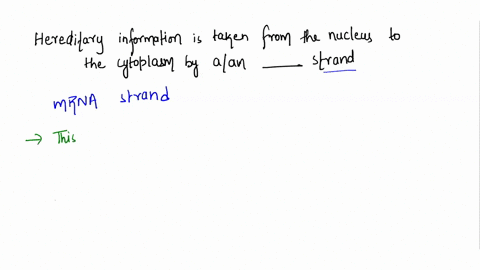 Hereditary information is taken from the nucleus to
the cytoplasm by a/an ____ strand
mRNA strand
→ This